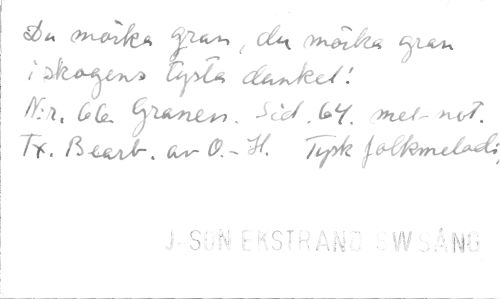 Du mörka gran, du mörka gran
i skogens tysta dunkel!
N:r. 66 Granen. Sid. 64. met not.
Tx. Bearb. av O.-H. Tysk folkmelodi,
J-SON EKSTRAND SW SÅNG